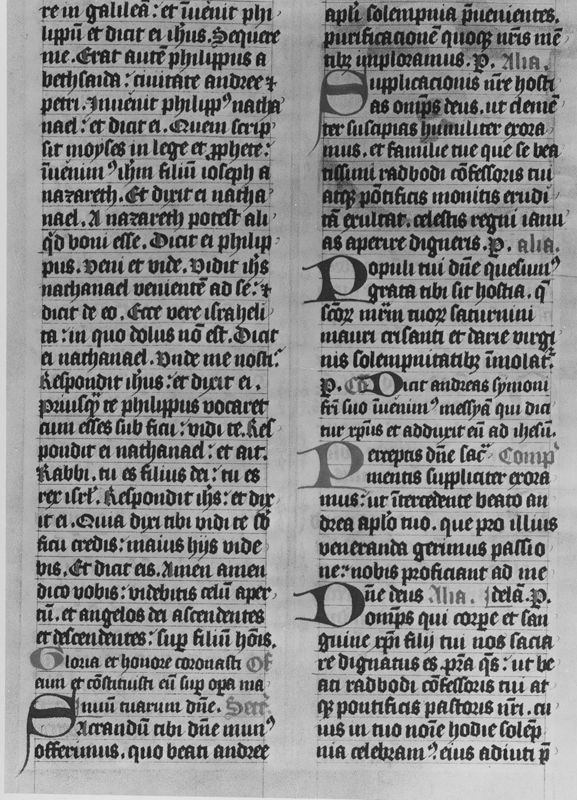 re in galileā: et īuenit phi
lippū et dicit ei ihus. Sequere
me. Erat autē philippus a
bethsaida: ciuitate andree ⁊
petri. Inuenit philippꝰ natha
nael: et dicit ei. Quem scrip
sit moyses in lege et ꝓphete:
īuenimꝰ ihm filiū ioseph a
nazareth. Et dixit ei natha
nael. A nazareth potest ali
qd boni esse. Dicit ei philip
pus. Veni et vide. Vidit ihs
nathanael venientē ad se: ⁊
dicit de eo. Ecce vere israheli
ta: in quo dolus nō est. Dicit
ei nathanael. Vnde me nosti:
Respondit ihus: et dixit ei.
Priusq̄ te philippus vocaret
cum esses sub ficu: vidi te. Res
pondit ei nathanael: et ait.
Rabbi. tu es filius dei: tu es
rex isrl. Respondit ihs: et dix
it ei. Quia dixi tibi vidi te sb
ficu credis: maius hijs vide
bis. Et dicit eis. Amen amen
dico vobis: videbitis celū aper
tū. et angelos dei ascendentes
et descendentes: sup filiū hōis.
Gloria et honore coronasti Of
eum et cōstituisti eū sup opa ma
nuū tuarum dne. Secr.
Sacrandū tibi dne munꝰ
offerimus. quo beati andree
apli solempnia p̄uenientes.
purificacionē quoqꝫ nr̄is mē
tibꝫ īnploramus. P. Alia.
Supplicacionis nr̄e hosti
as omps deus. ut clemē
ter suscipias humiliter exora
mus. et familie tue que se bea
tissimi radbodi cōfessoris tui
atqꝫ pōtificis monitis erudi
tā exultat. celestis regni ianu
as aperire digneris. P. alia.
Populi tui dne quesumꝰ
grata tibi sit hostia. q̄
scōꝝ mr̄im tuoꝝ saturnini
mauri crisanti et darie virgi
nis solempnitatibꝫ īmolat.
P. Co Dicit andreas symoni
fri suo īuenimꝰ messyā qui dici
tur xpūs et adduxit eū ad ihesū.
Perceptis dne sac Comp
mentis suppliciter exora
mus: ut ītercedente beato an
drea aplo tuo. que pro illius
veneranda gerimus passio
ne: nobis proficiant ad me
Dne deus Alia. delā. P.
omps qui corpe et san
guine xpi filij tui nos sacia
re dignatus es. p̄ra qs: ut be
ati radbodi cōfessoris tui at
qꝫ pontificis pastoris nr̄i. cu
ius in tuo noīe hodie solēp
nia celebramꝰ. eius adiuti p̄